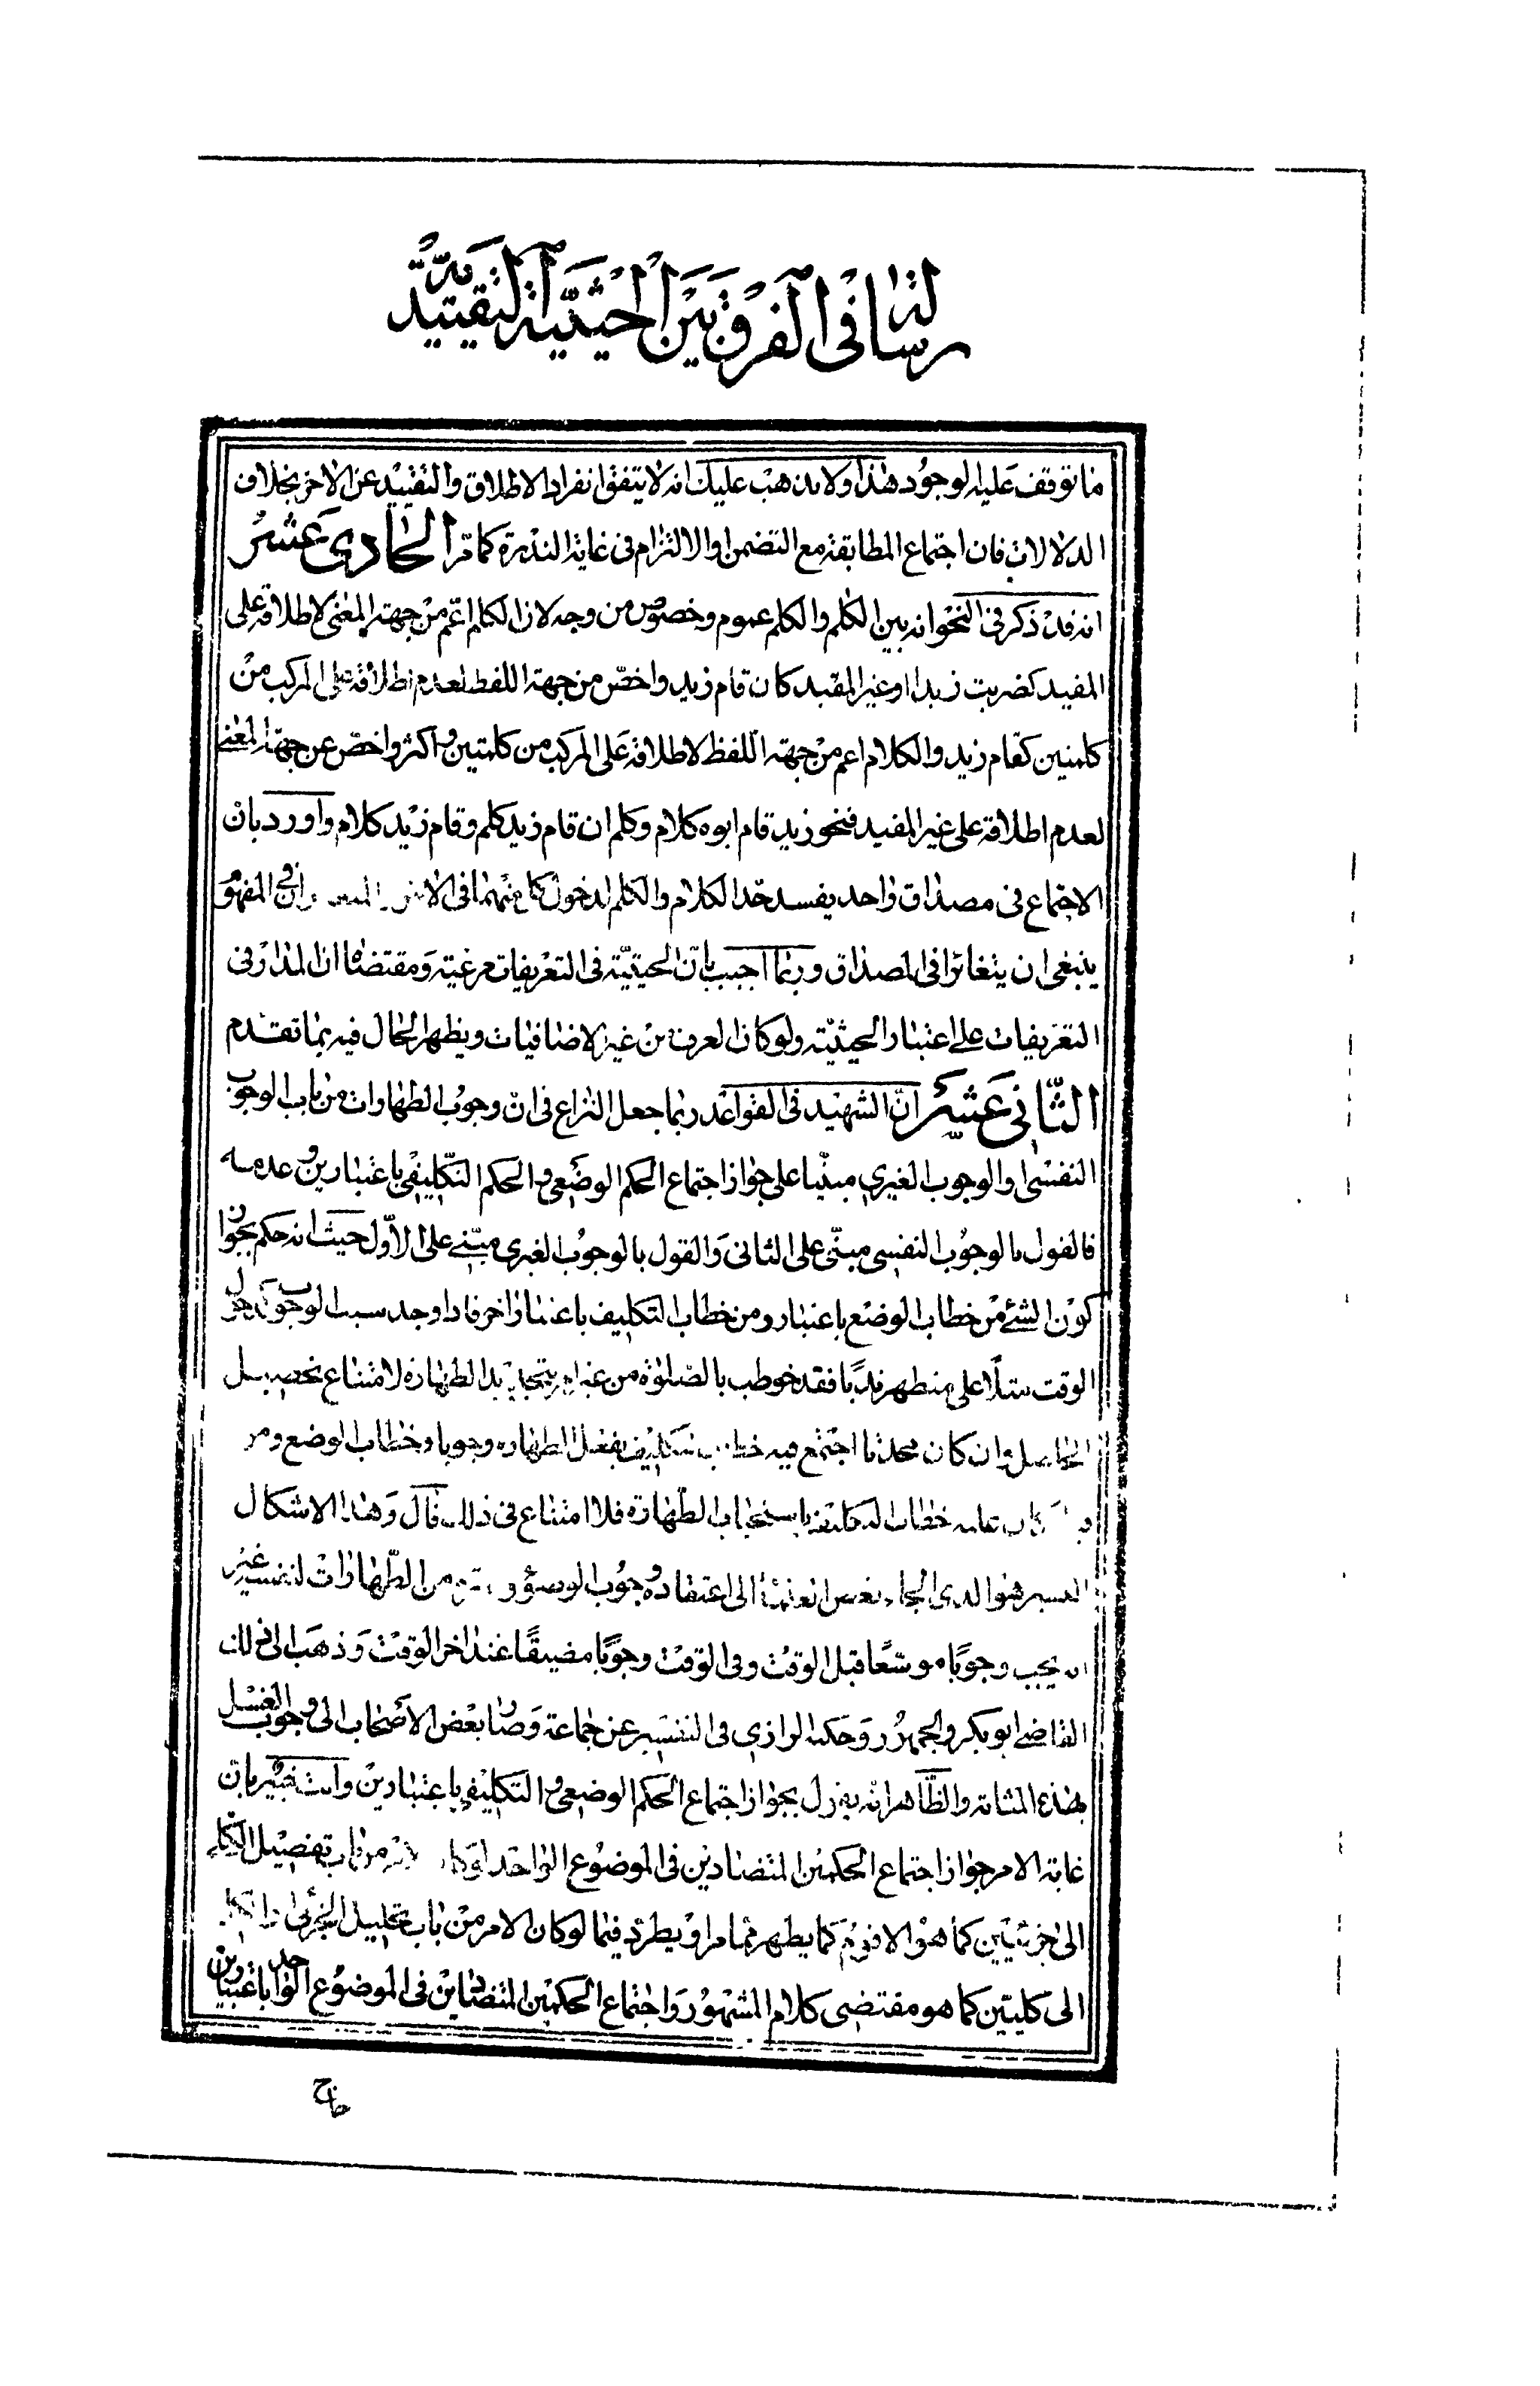 رسالة في الفرق بين الحيثية التقييدية
ما توقف عليه الوجود هذا ولا يذهب عليك انه لا يتفق انفراد الاطلاق والتقييد عن الاخر بخلاف
الدلالات فان اجتماع المطابقة مع التضمن او الالتزام في غاية الندرة كما مر الحادي عشر
انه قد ذكر في النحو انه بين الكلم والكلم عموم وخصوص من وجه لان الكلم اعم من جهة المعنى لاطلاقه على
المفيد كضربت زيدا او غير المفيد كان قام زيد واخص من جهة اللفظ لعدم اطلاقه على المركب من
كلمتين كقام زيد والكلام اعم من جهة اللفظ لاطلاقه على المركب من كلمتين واكثر واخص عن جهة المعنى
لعدم اطلاقه على غير المفيد فنحو زيد قام ابوه كلام وكلم ان قام زيد كلم وقام زيد كلام واورد بان
الاجتماع في مصداق واحد يفسد حد الكلام والكلم لدخول كل منهما في الاخر المفهوم
ينبغي ان يتغائرا في المصداق وربما اجيب بان الحيثية في التعريفات مرعية ومقتضاه ان المدار في
التعريفات على اعتبار الحيثية ولو كان المعرف من غير الاضافيات ويظهر الحال فيه بما تقدم
الثاني عشر ان الشهيد في القواعد ربما جعل النزاع في ان وجوب الطهارات من باب الوجوب
النفسي او الوجوب الغيري مبنيا على جواز اجتماع الحكم الوضعي والحكم التكليفي باعتبارين وعدمه
فالقول بالوجوب النفسي مبني على الثاني والقول بالوجوب الغيري مبني على الاول حيث انه حكم بجواز
كون الشئ من خطاب الوضع باعتبار ومن خطاب التكليف باعتبار اخر فاذا وجد سبب الوجوب كدخول
الوقت مثلا على متطهر ندبا فقد خوطب بالصلوة من غير تجديد الطهارة لامتناع تحصيل
الحاصل وان كان محدثا اجتمع فيه خطاب التكليف بفعل الطهارة وجوبا وخطاب الوضع
خطاب التكليف باستحباب الطهارة فلا امتناع في ذلك قال وهذا الاشكال
اليسير هو الذي الجاء بعض العلماء الى اعتقاد وجوب الوضوء وغيره من الطهارات لنفسه غير
انه يجب وجوبا موسعا قبل الوقت وفي الوقت وجوبا مضيقا عند اخر الوقت وذهب الى ذلك
القاضي ابو بكر والجمهور وحكاه الرازي في التفسير عن جماعة وصار بعض الاصحاب الى وجوب الغسل
بهذه المثابة والظاهر انه يقول بجواز اجتماع الحكم الوضعي والتكليفي باعتبارين وانت خبير بان
غاية الامر جواز اجتماع الحكمين المتضادين في الموضوع الواحد لو كان الامر من باب تفصيل الكلي
الى جزئيين كما هو الاقوم كما يظهر مما مر او يطرد فيما لو كان الامر من باب تحليل الجزئي او الكلي
الى كليتين كما هو مقتضى كلام المشهور واجتماع الحكمين المتضادين في الموضوع الواحد باعتبارين
خارج